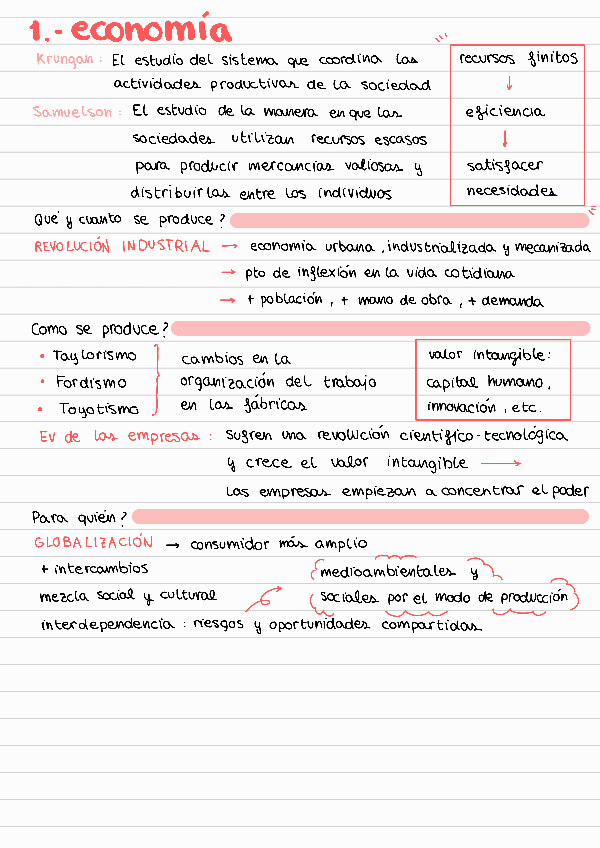 1.- economía
Krungan: El estudio del sistema que coordina las
actividades productivas de la sociedad
Samuelson: El estudio de la manera en que las
sociedades utilizan recursos escasos
para producir mercancías valiosas y
distribuirlas entre los individuos
recursos finitos
↓
eficiencia
↓
satisfacer
necesidades
Qué y cuanto se produce?
REVOLUCIÓN INDUSTRIAL → economía urbana, industrializada y mecanizada
→ pto de inflexión en la vida cotidiana
→ + población, + mano de obra, + demanda
Como se produce?
• Taylorismo
• Fordismo
• Toyotismo
cambios en la
organización del trabajo
en las fábricas
valor intangible:
capital humano,
innovación, etc.
Ev de las empresas: Sufren una revolución científico-tecnológica
y crece el valor intangible →
las empresas empiezan a concentrar el poder
Para quién?
GLOBALIZACIÓN → consumidor más amplio
+ intercambios
mezcla social y cultural
interdependencia: riesgos y oportunidades compartidas
medioambientales y
sociales por el modo de producción